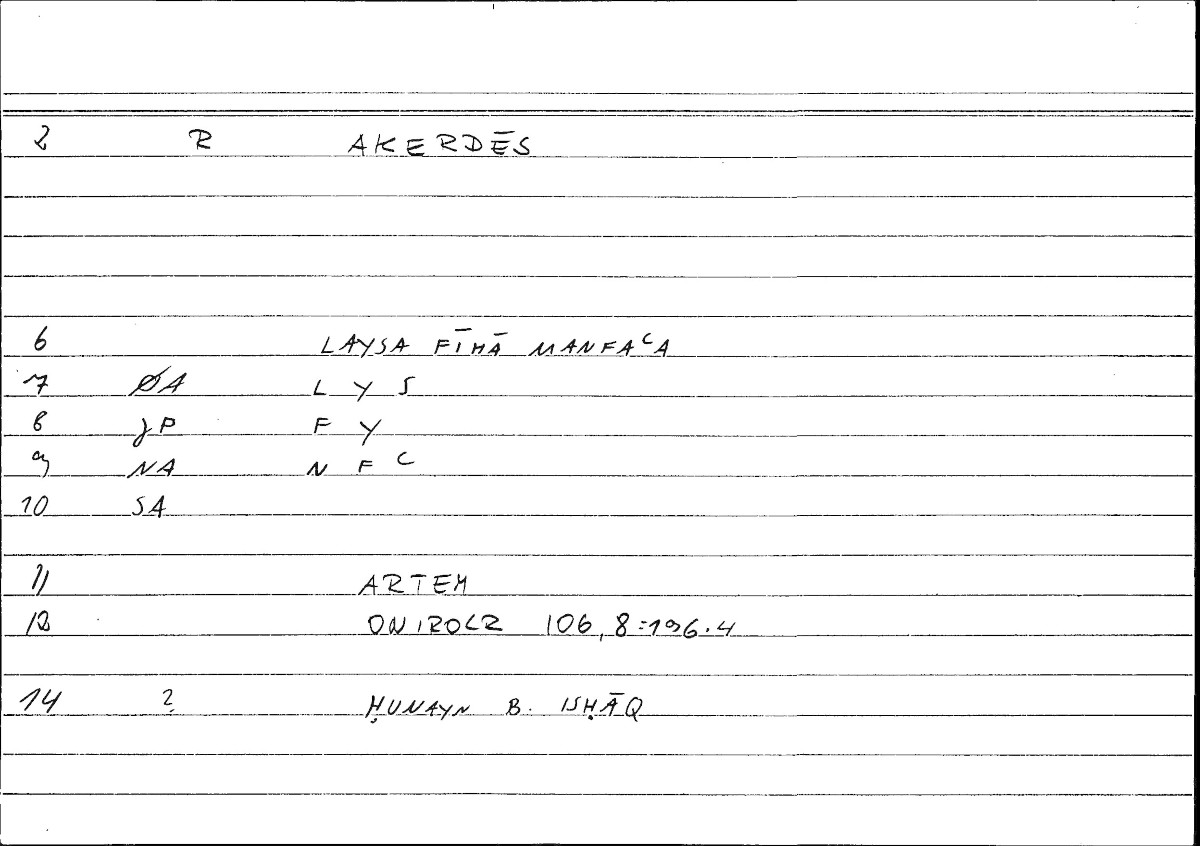 2 R AKERDĒS
6 LAYSA FĪHĀ MANFAʿA
7 ØA L Y S
8 JP F Y
9 NA N F ʿ
10 SA
11 ARTEM
12 ONIROCR 106,8=196.4
14 ? ḤUNAYN B. ISḤĀQ